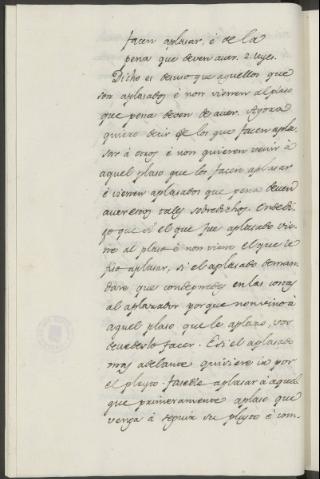 facen aplasar, é de la
pena que deven auer. 2 leyes.
Dicho es desuso que aquellos que
son aplasados é non vienen al plaso
que pena deven de auer. Agora
quiero decir de los que facen apla-
sar á otros é non quieren venir á
aquel plaso que los facen aplasar
é vienen aplasados que pena deuen
auer estos tales sobredichos. Onde di-
go que si el que fue aplasado vie-
ne al plaso é non viene el que le
fiso aplasar, si el aplasado deman-
dare que condepnedes en las costas
al aplazador porque non vino á
aquel plaso que le aplazo, vos
deuedeslo facer. E si el aplasado
mas adelante quisiere ir por
el pleyto fasedle aplasar á aquel
que primeramente aplaso que
venga á seguir su pleyto é com-